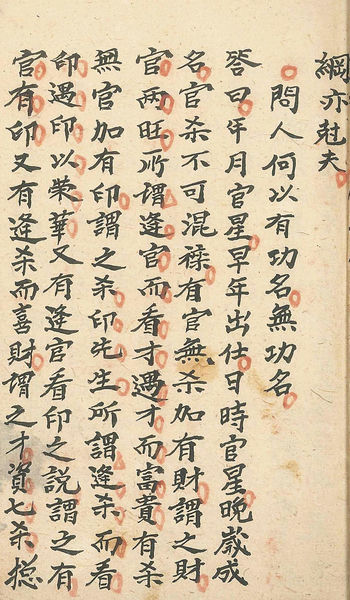 綱亦尅夫
問人何以有功名無功名
答曰年月官星早年出仕日時官星晚歲成
名官杀不可混襍有官無杀加有財謂之財
官兩旺所謂逢官而看才遇才而富貴有杀
無官加有印謂之杀印先生所謂逢杀而看
印遇印以荣華又有逢官看印之説謂之有
官有印又有逢杀而喜財謂之才資七杀捴